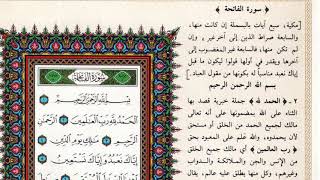 سورة الفاتحة
«مكية، سبع آيات بالبسملة إن كانت منها،
والسابعة صراط الذين إلى آخرها، وإن
لم تكن منها، فالسابعة غير المغضوب إلى
آخرها ويقدر في أولها قولوا ليكون ما قبل
إياك نعبد مناسباً له بكونها من مقول العباد».
بسم الله الرحمن الرحيم
٢ - ﴿الحمد لله﴾ جملة خبرية قصد بها
الثناء على الله بمضمونها على أنه تعالى
مالك لجميع الحمد من الخلق أو مستحق
لأن يحمدوه، والله علم على المعبود بحق
﴿رب العالمين﴾ أي مالك جميع الخلق
من الإنس والجن والملائكة والدواب
وغيرهم، وكل منها يطلق عليه عالم، يقال
سُورَةُ الفَاتِحَةِ
بِسْمِ اللَّهِ الرَّحْمَٰنِ الرَّحِيمِ
الْحَمْدُ لِلَّهِ رَبِّ الْعَالَمِينَ الرَّحْمَٰنِ
الرَّحِيمِ مَالِكِ يَوْمِ الدِّينِ
إِيَّاكَ نَعْبُدُ وَإِيَّاكَ نَسْتَعِينُ